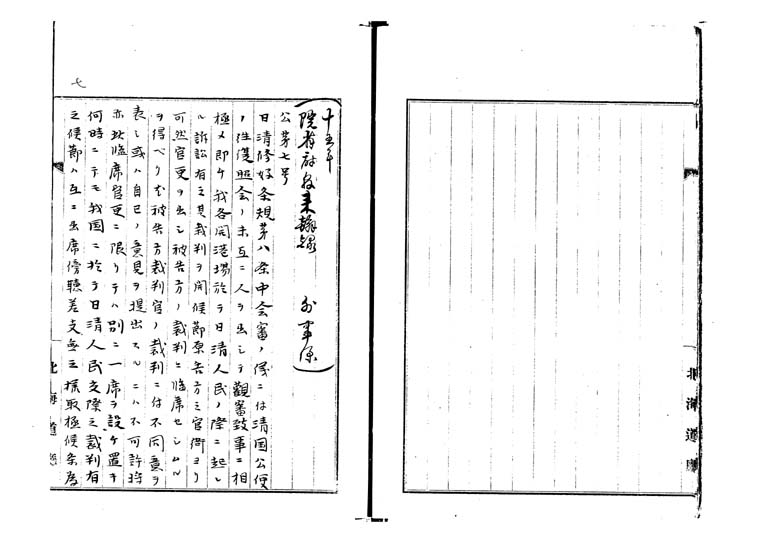 北海道廳
十五年
院省府縣来翰録 外事係
公第七号
日清修好条規第八条中会審ノ儀ニ付清国公使
ノ往復照会ノ末互ニ人ヲ出シテ観審致事ニ相
極メ即ケ我各開港場於テ日清人民ノ際ニ起レ
ル訴訟有之其裁判ヲ開候節原告方ミ官衙ヨリ
可然官吏ヲ出シ被告方ノ裁判ニ臨席セシムル
ヲ得ベク尤被告方裁判官ノ裁判ニ付不同意ヲ
表シ或ハ自己ノ意見ヲ提出スルニハ不可許将
亦此臨席官吏ニ限リテハ別ニ一席ヲ設ケ置キ
何時ニテモ我国ニ於テ日清人民交際之裁判有
之候節ハ互ニ出席傍聴差支無之様取極候条為
北海道廳
七